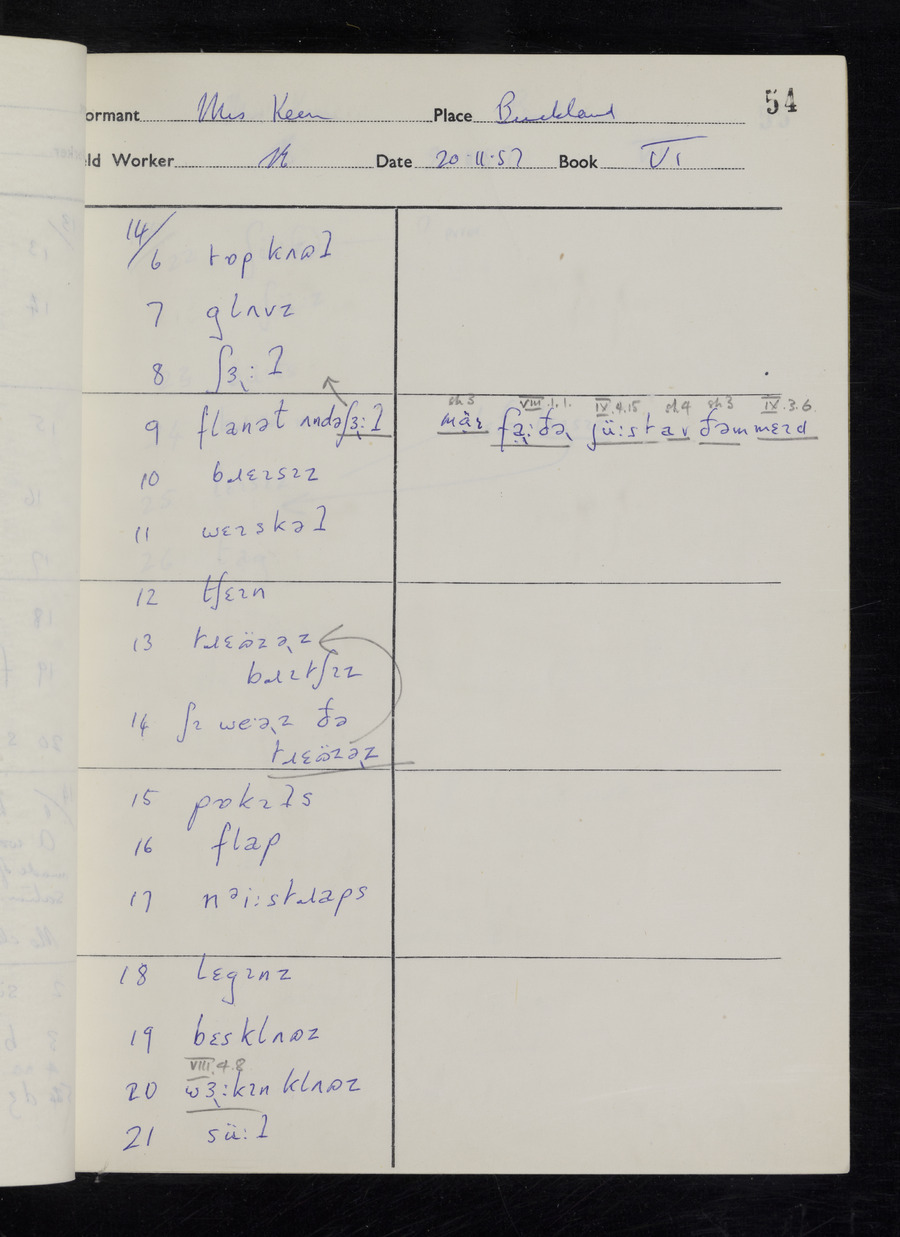 54
ormant Mrs Keen Place Buckland
ld Worker Date 20·11·57 Book VI
14/6 tɒp kʌɷt
7 glʌvz
8 ʃɜ˞: ɫ
9 flanət ʌndəʃɜ˞: ɫ
sh 3 VIII.1.1. IX.4.15 sh.4 sh 3 IX.3.6
mäɪ fa˞:ðə˞ jü:st av ðəm mɛɪd
10 bɹɛɪsɪz
11 wɛɪskəɫ
12 tʃɛɪn
13 tɹɛɷ̈zə˞z
bɹɪtʃɪz
14 ʃɪ weə˞z ðə
tɹɛɷ̈zə˞z
15 pɒkɪts
16 flap
17 nᵊi:stɹaps
18 lɛgɪnz
19 bɛs klʌɷz
VIII.4.8
20 wɜ˞:kɪn klʌɷz
21 sü:t